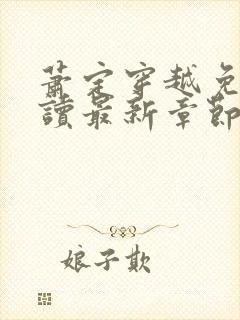 萧定穿越免
讀最新章節
娘子欺